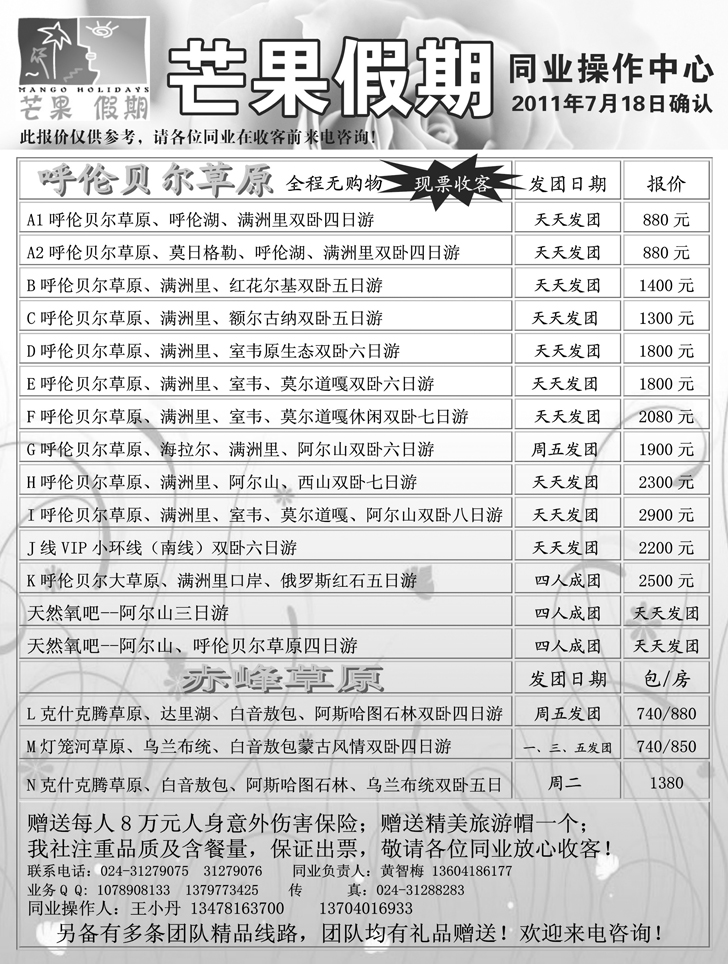 MANGO HOLIDAYS
芒果 假期
芒果假期
同业操作中心
2011年7月18日确认
此报价仅供参考，请各位同业在收客前来电咨询！
呼伦贝尔草原 全程无购物 现票收客 发团日期 报价
A1呼伦贝尔草原、呼伦湖、满洲里双卧四日游 天天发团 880元
A2呼伦贝尔草原、莫日格勒、呼伦湖、满洲里双卧四日游 天天发团 880元
B呼伦贝尔草原、满洲里、红花尔基双卧五日游 天天发团 1400元
C呼伦贝尔草原、满洲里、额尔古纳双卧五日游 天天发团 1300元
D呼伦贝尔草原、满洲里、室韦原生态双卧六日游 天天发团 1800元
E呼伦贝尔草原、满洲里、室韦、莫尔道嘎双卧六日游 天天发团 1800元
F呼伦贝尔草原、满洲里、室韦、莫尔道嘎休闲双卧七日游 天天发团 2080元
G呼伦贝尔草原、海拉尔、满洲里、阿尔山双卧六日游 周五发团 1900元
H呼伦贝尔草原、满洲里、阿尔山、西山双卧七日游 天天发团 2300元
I呼伦贝尔草原、满洲里、室韦、莫尔道嘎、阿尔山双卧八日游 天天发团 2900元
J线VIP小环线（南线）双卧六日游 天天发团 2200元
K呼伦贝尔大草原、满洲里口岸、俄罗斯红石五日游 四人成团 2500元
天然氧吧--阿尔山三日游 四人成团 天天发团
天然氧吧--阿尔山、呼伦贝尔草原四日游 四人成团 天天发团
赤峰草原 发团日期 包/房
L克什克腾草原、达里湖、白音敖包、阿斯哈图石林双卧四日游 周五发团 740/880
M灯笼河草原、乌兰布统、白音敖包蒙古风情双卧四日游 一、三、五发团 740/850
N克什克腾草原、白音敖包、阿斯哈图石林、乌兰布统双卧五日 周二 1380
赠送每人8万元人身意外伤害保险；赠送精美旅游帽一个；
我社注重品质及含餐量，保证出票，敬请各位同业放心收客！
联系电话：024-31279075 31279076 同业负责人：黄智梅 13604186177
业务QQ: 1078908133 1379773425 传 真：024-31288283
同业操作人：王小丹 13478163700 13704016933
另备有多条团队精品线路，团队均有礼品赠送！欢迎来电咨询！